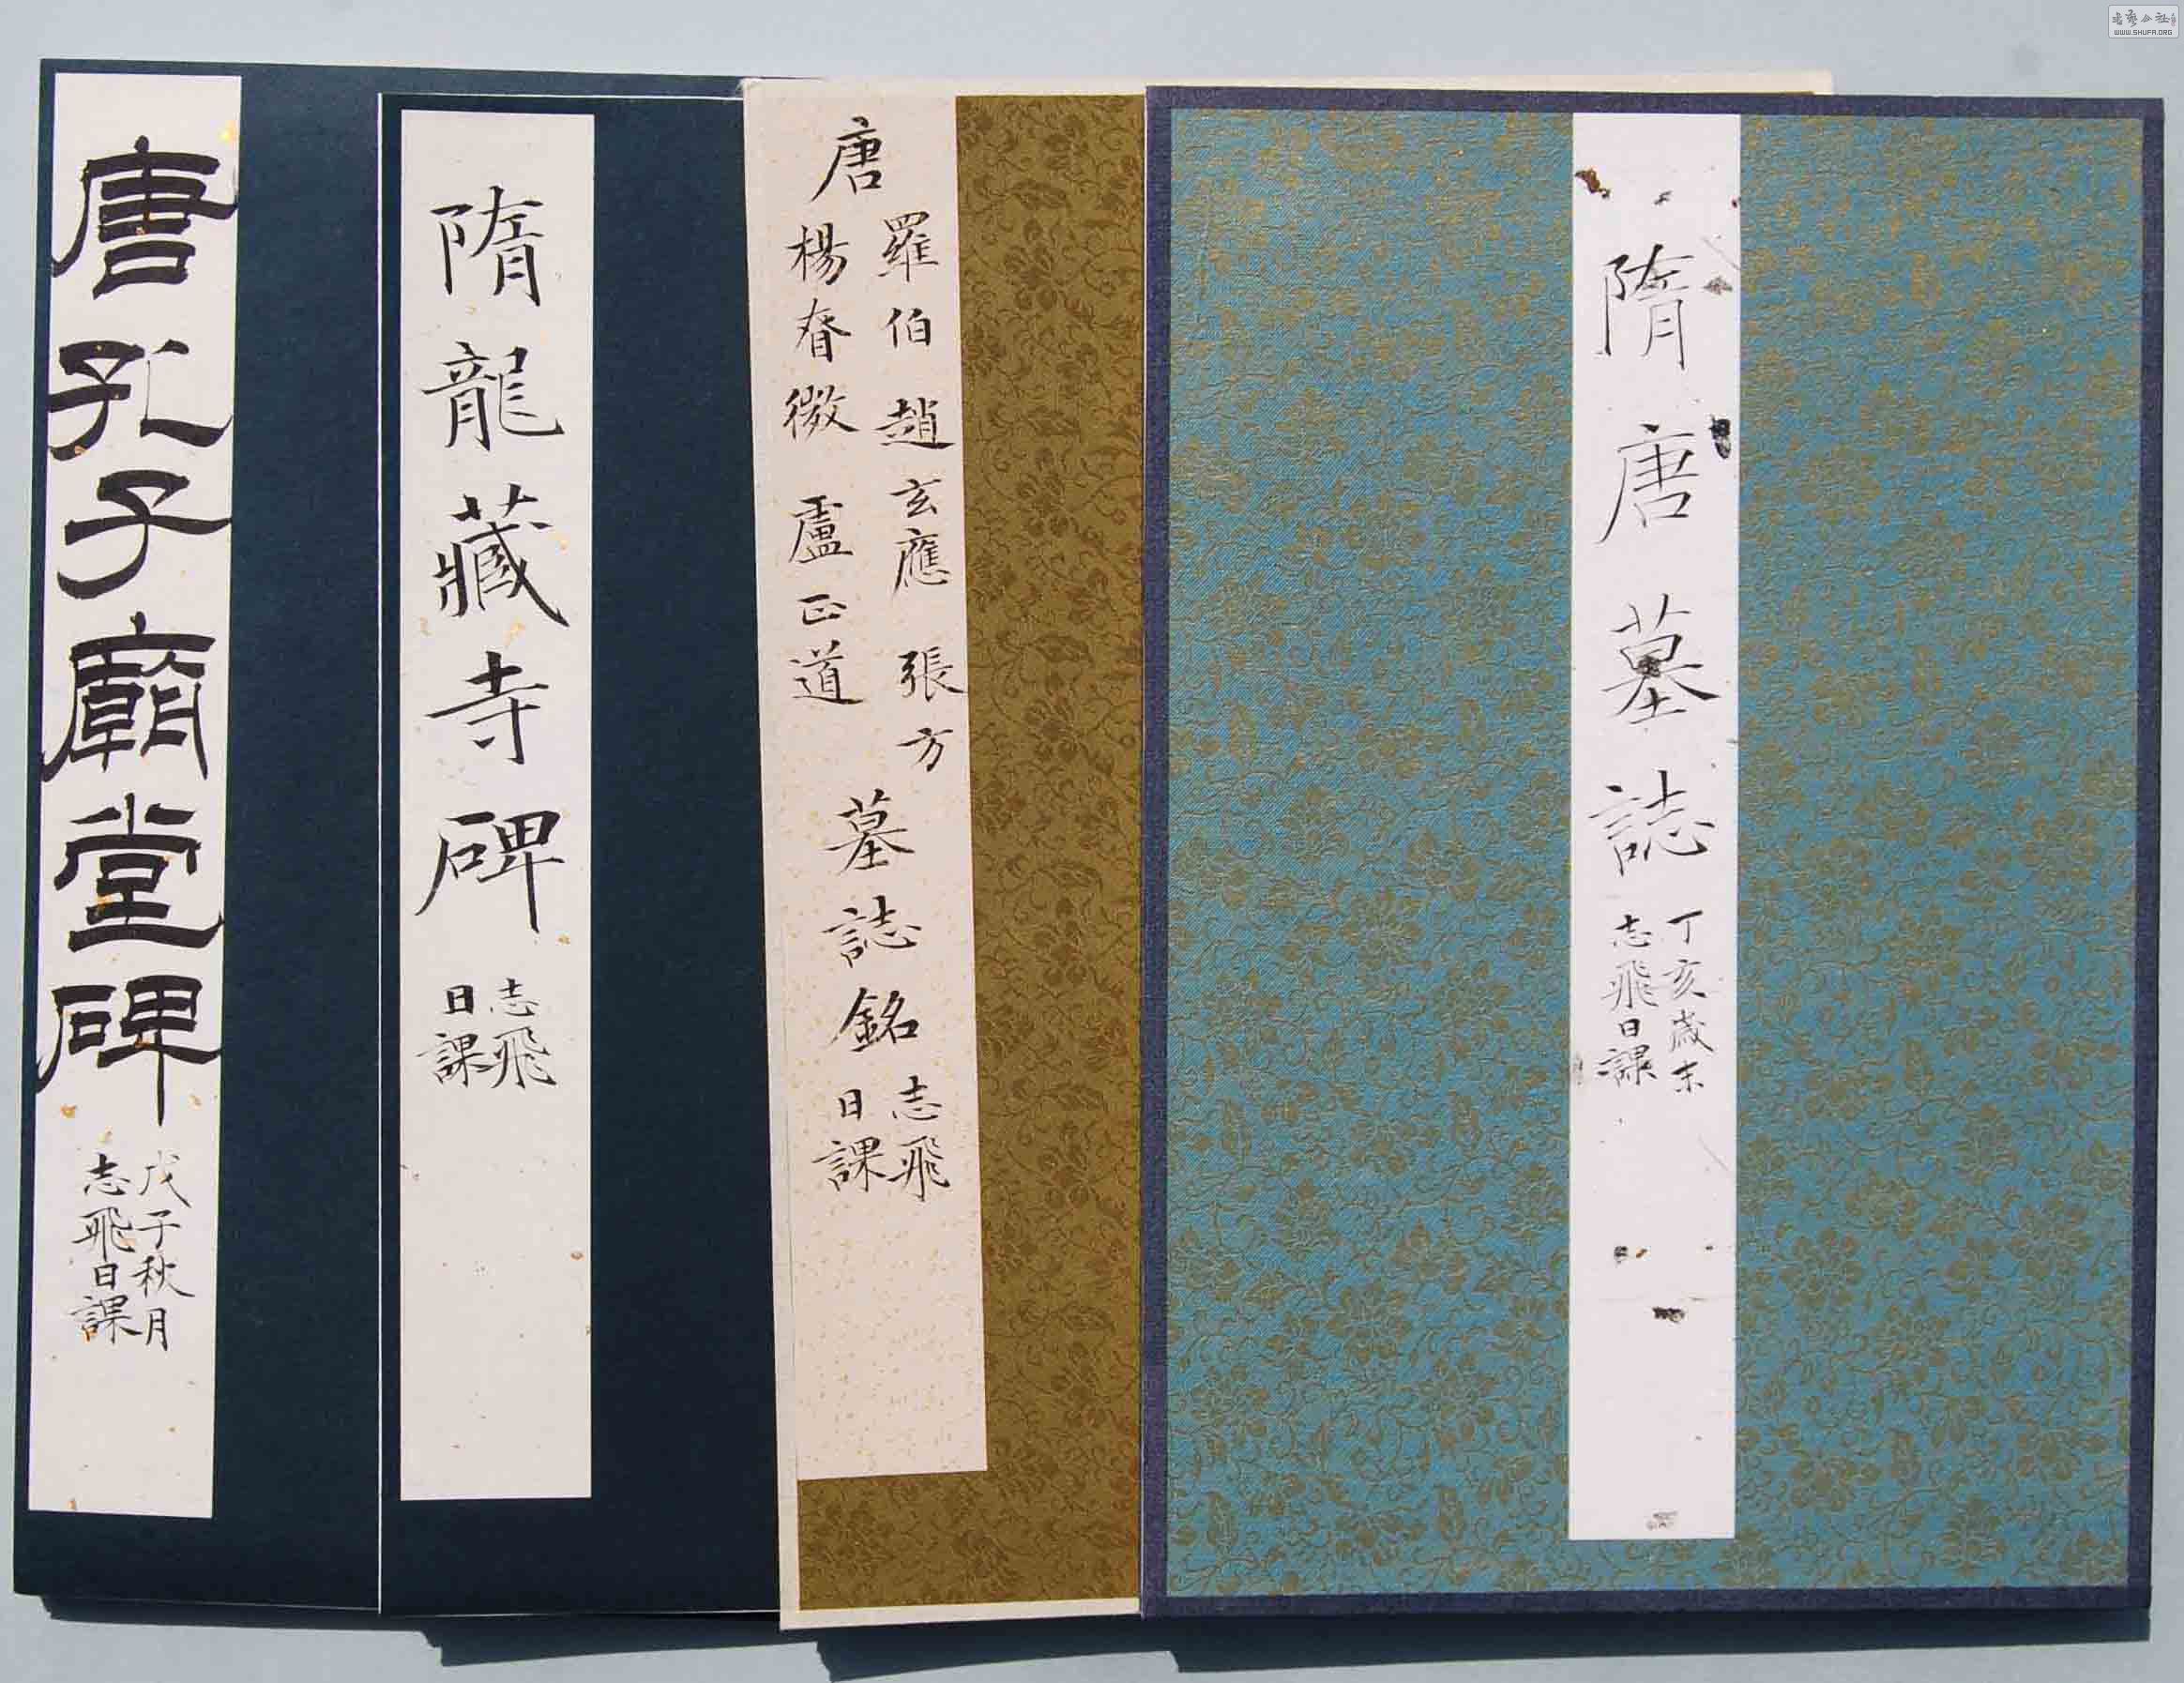 唐孔子廟堂碑
戊子秋月
志飛日課
隋龍藏寺碑
志飛
日課
唐
羅伯 趙玄應 張方
楊眘微 盧正道
墓誌銘
志飛
日課
隋唐墓誌
丁亥歲末
志飛日課
WWW.SHUFA.ORG